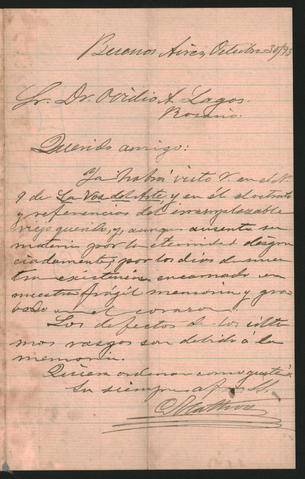 Buenos Aires, Octubre 30/93
Sr. Dr. Ovidio A. Lagos.
Rosario.
Querido amigo:
Ya habrá visto V. en el N.
9 de La Voz del Arte, y en él el retrato
y referencias del irreemplazable
viejo querido, y, aunque ausente su
materia por la eternidad desgra-
ciadamente, y por los dias de nues-
tra existencia encarnado en
nuestra frágil memoria y gra-
bado en el corazon.
Los defectos de los últi-
mos rasgos son debido a la
memoria.
Quiera ordenar como guste á
su siempre af.